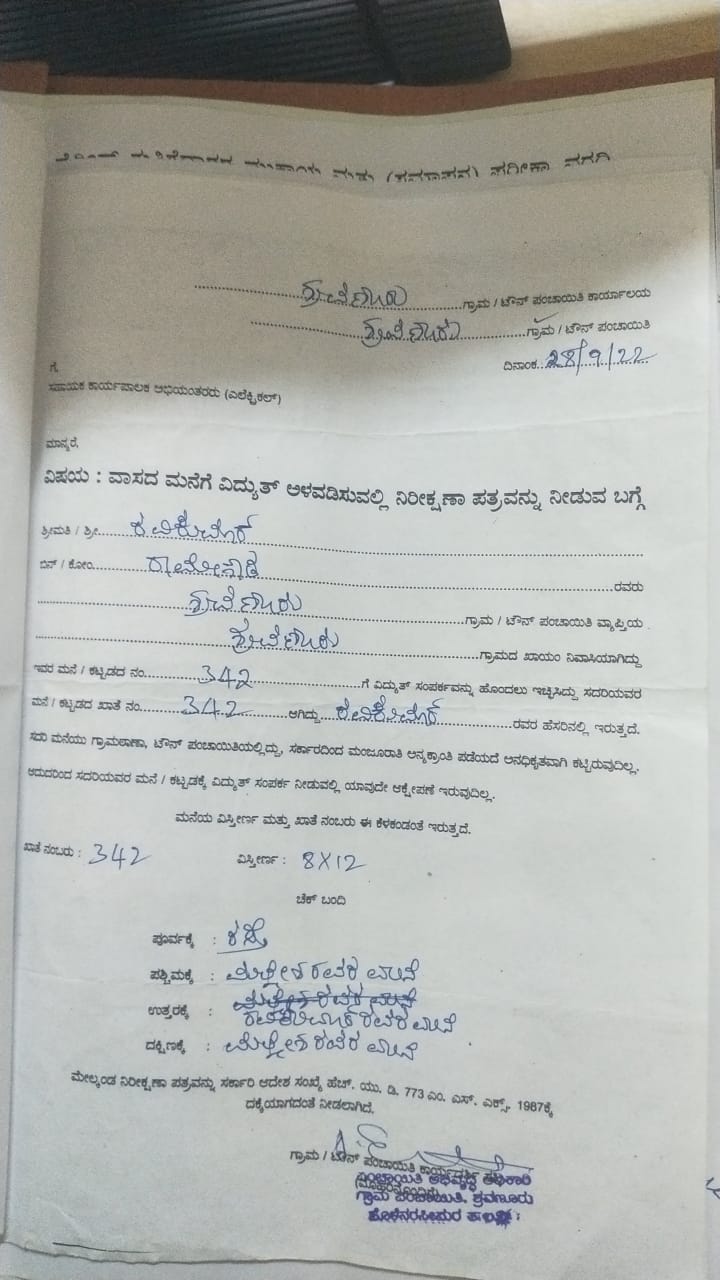 ಶ್ರವಣೂರು ಗ್ರಾಮ / ಟೌನ್ ಪಂಚಾಯಿತಿ ಕಾರ್ಯಾಲಯ
ಶ್ರವಣೂರು ಗ್ರಾಮ / ಟೌನ್ ಪಂಚಾಯಿತಿ
ದಿನಾಂಕ 28/9/22
ಗೆ,
ಸಹಾಯಕ ಕಾರ್ಯಪಾಲಕ ಅಭಿಯಂತರರು (ಎಲೆಕ್ಟ್ರಿಕಲ್)
ಮಾನ್ಯರೆ,
ವಿಷಯ : ವಾಸದ ಮನೆಗೆ ವಿದ್ಯುತ್ ಅಳವಡಿಸುವಲ್ಲಿ ನಿರೀಕ್ಷಣಾ ಪತ್ರವನ್ನು ನೀಡುವ ಬಗ್ಗೆ
ಶ್ರೀಮತಿ / ಶ್ರೀ
ಬಿನ್ / ಕೋಂ ರಾಮೇಗೌಡ ರವರು
ಶ್ರವಣೂರು ಗ್ರಾಮ / ಟೌನ್ ಪಂಚಾಯಿತಿ ವ್ಯಾಪ್ತಿಯ
ಶ್ರವಣೂರು ಗ್ರಾಮದ ಖಾಯಂ ನಿವಾಸಿಯಾಗಿದ್ದು
ಇವರ ಮನೆ / ಕಟ್ಟಡದ ನಂ. 342 ಗೆ ವಿದ್ಯುತ್ ಸಂಪರ್ಕವನ್ನು ಹೊಂದಲು ಇಚ್ಛಿಸಿದ್ದು ಸದರಿಯವರ
ಮನೆ / ಕಟ್ಟಡದ ಖಾತೆ ನಂ. 342 ಆಗಿದ್ದು ರವರ ಹೆಸರಿನಲ್ಲಿ ಇರುತ್ತದೆ.
ಸದರಿ ಮನೆಯು ಗ್ರಾಮಠಾಣಾ, ಟೌನ್ ಪಂಚಾಯಿತಿಯಲ್ಲಿದ್ದು, ಸರ್ಕಾರದಿಂದ ಮಂಜೂರಾತಿ ಅನ್ಯಕ್ರಾಂತಿ ಪಡೆಯದೆ ಅನಧಿಕೃತವಾಗಿ ಕಟ್ಟಿರುವುದಿಲ್ಲ.
ಆದುದರಿಂದ ಸದರಿಯವರ ಮನೆ / ಕಟ್ಟಡಕ್ಕೆ ವಿದ್ಯುತ್ ಸಂಪರ್ಕ ನೀಡುವಲ್ಲಿ ಯಾವುದೇ ಆಕ್ಷೇಪಣೆ ಇರುವುದಿಲ್ಲ.
ಮನೆಯ ವಿಸ್ತೀರ್ಣ ಮತ್ತು ಖಾತೆ ನಂಬರು ಈ ಕೆಳಕಂಡಂತೆ ಇರುತ್ತದೆ.
ಖಾತೆ ನಂಬರು : 342 ವಿಸ್ತೀರ್ಣ : 8X12
ಚೆಕ್ ಬಂದಿ
ಪೂರ್ವಕ್ಕೆ : ರಸ್ತೆ
ಪಶ್ಚಿಮಕ್ಕೆ : ಮಲ್ಲೇಶರವರ ಮನೆ
ಉತ್ತರಕ್ಕೆ : ರವರ ಮನೆ
ದಕ್ಷಿಣಕ್ಕೆ : ಮಲ್ಲೇಶರವರ ಮನೆ
ಮೇಲ್ಕಂಡ ನಿರೀಕ್ಷಣಾ ಪತ್ರವನ್ನು ಸರ್ಕಾರಿ ಆದೇಶ ಸಂಖ್ಯೆ ಹೆಚ್. ಯು. ಡಿ. 773 ಎಂ. ಎಸ್. ಎಕ್ಸ್. 1987ಕ್ಕೆ
ದಕ್ಕೆಯಾಗದಂತೆ ನೀಡಲಾಗಿದೆ.
ಗ್ರಾಮ / ಟೌನ್ ಪಂಚಾಯಿತಿ ಕಾರ್ಯದರ್ಶಿ
ಪಂಚಾಯಿತಿ ಅಭಿವೃದ್ಧಿ ಅಧಿಕಾರಿ
ಗ್ರಾಮ ಪಂಚಾಯಿತಿ, ಶ್ರವಣೂರು
ಹೊಳೆನರಸೀಪುರ ತಾಲ್ಲೂಕು